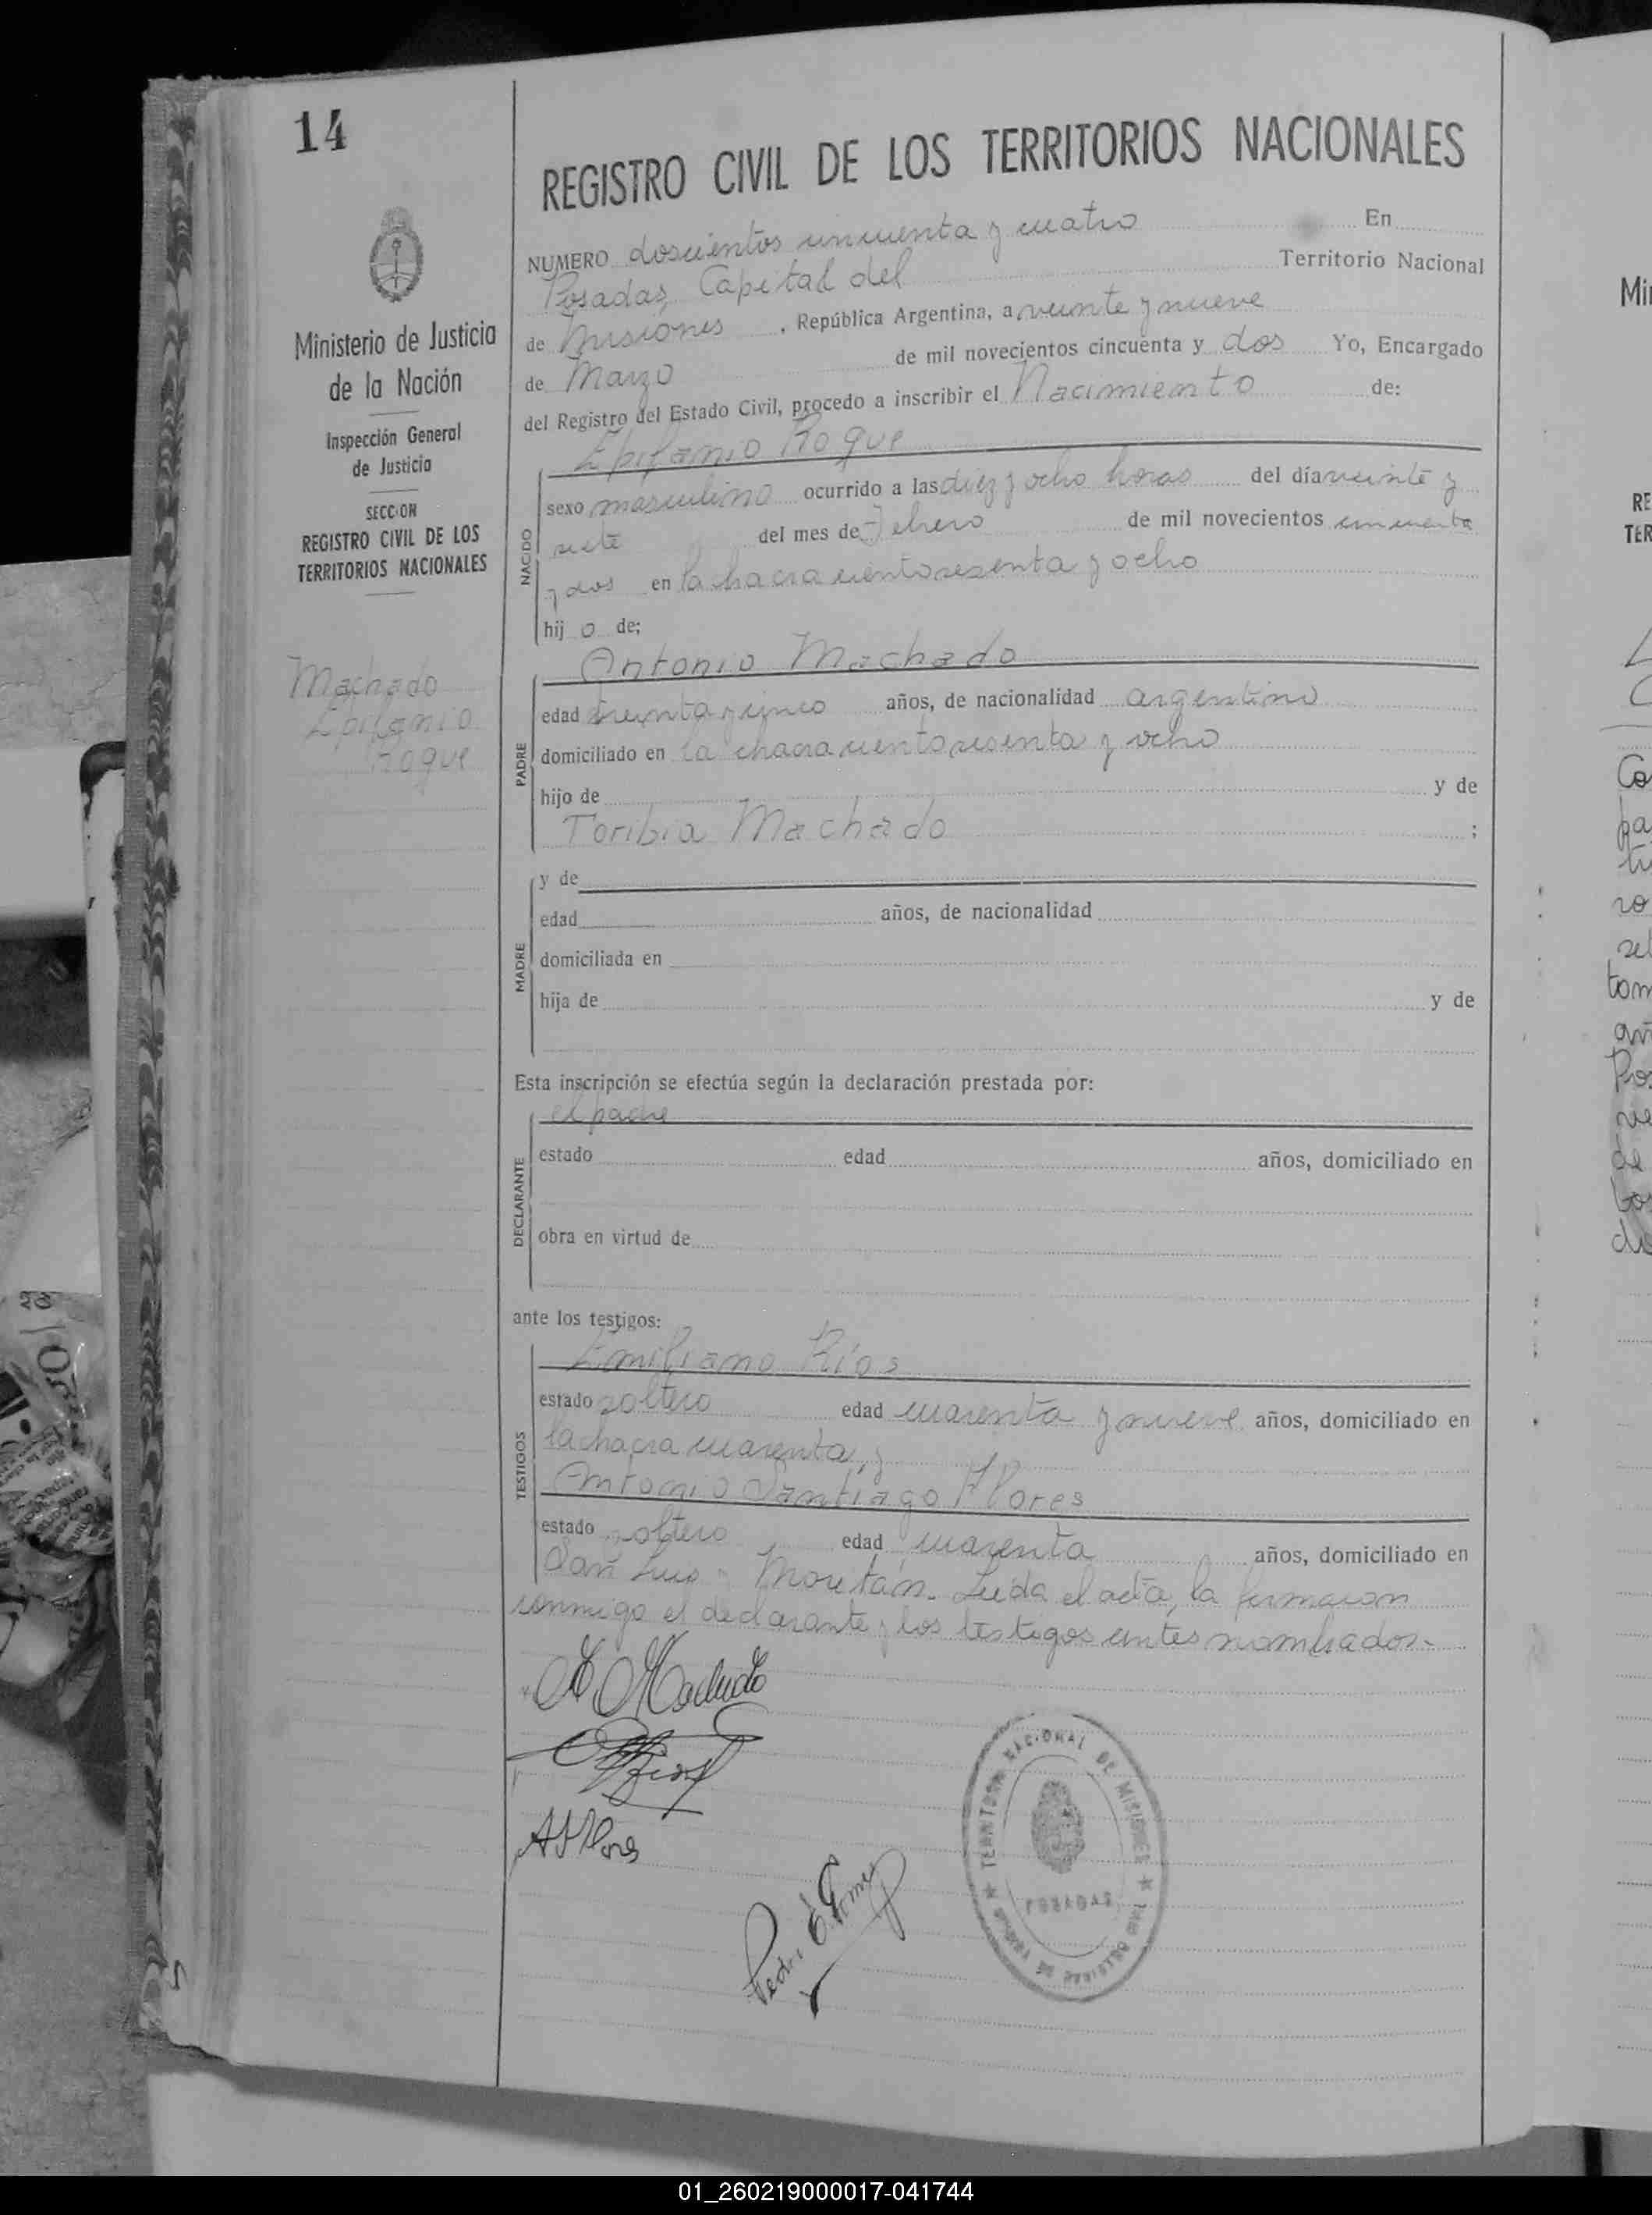 14
Ministerio de Justicia
de la Nación
Inspección General
de Justicia
SECCION
REGISTRO CIVIL DE LOS
TERRITORIOS NACIONALES
Machado
Epifanio
Roque
REGISTRO CIVIL DE LOS TERRITORIOS NACIONALES
NUMERO doscientos cincuenta y cuatro En
Posadas, Capital del Territorio Nacional
de Misiones, República Argentina, a veinte y nueve
de Marzo de mil novecientos cincuenta y dos Yo, Encargado
del Registro del Estado Civil, procedo a inscribir el Nacimiento de:
Epifanio Roque
NACIDO
sexo masculino ocurrido a las diez y ocho horas del día veinte y
siete del mes de Febrero de mil novecientos cincuenta
y dos en la chacra ciento sesenta y ocho
hij o de;
Antonio Machado
PADRE
edad treinta y cinco años, de nacionalidad argentino
domiciliado en la chacra ciento sesenta y ocho
hijo de y de
Toribia Machado ;
MADRE
y de
edad años, de nacionalidad
domiciliada en
hija de y de
Esta inscripción se efectúa según la declaración prestada por:
el padre
DECLARANTE
estado edad años, domiciliado en
obra en virtud de
ante los testigos:
Emiliano Ríos
TESTIGOS
estado soltero edad cuarenta y nueve años, domiciliado en
la chacra cuarenta, y
Antonio Santiago Flores
estado soltero edad cuarenta años, domiciliado en
San Luis y Moritán. Leída el acta, la firmaron
conmigo el declarante y los testigos antes nombrados.-
A. Machado
ASFlores
Pedro E. Gomez
TERRITORIO NACIONAL DE MISIONES
POSADAS
Min
RE
TER
01_260219000017-041744